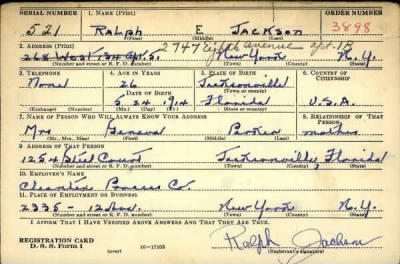 SERIAL NUMBER 1. NAME (Print) ORDER NUMBER
521 RALPH E JACKSON 3898
(First) (Middle) (Last)
2. ADDRESS (Print) 2747 Eighth Avenue Apt. 1B
268 West 134 Apt. 5. New York N.Y.
(Number and street or R. F. D. number) (Town) (County) (State)
3. TELEPHONE 4. AGE IN YEARS 5. PLACE OF BIRTH 6. COUNTRY OF CITIZENSHIP
None 26 Jacksonville
DATE OF BIRTH (Town or county)
5 24 1914 Florida U.S.A.
(Exchange) (Number) (Mo.) (Day) (Yr.) (State or country)
7. NAME OF PERSON WHO WILL ALWAYS KNOW YOUR ADDRESS 8. RELATIONSHIP OF THAT PERSON
Mrs Geneva mother
(Mr., Mrs., Miss) (First) (Middle) (Last)
9. ADDRESS OF THAT PERSON
1254 Court Jacksonville, Florida
(Number and street or R. F. D. number) (Town) (County) (State)
10. EMPLOYER'S NAME
Process Co.
11. PLACE OF EMPLOYMENT OR BUSINESS
2335 - 12 Ave. New York N.Y.
(Number and street or R. F. D. number) (Town) (County) (State)
I AFFIRM THAT I HAVE VERIFIED ABOVE ANSWERS AND THAT THEY ARE TRUE.
REGISTRATION CARD
D. S. S. Form 1 (over) 16—17105 Ralph Jackson
(Registrant's signature)